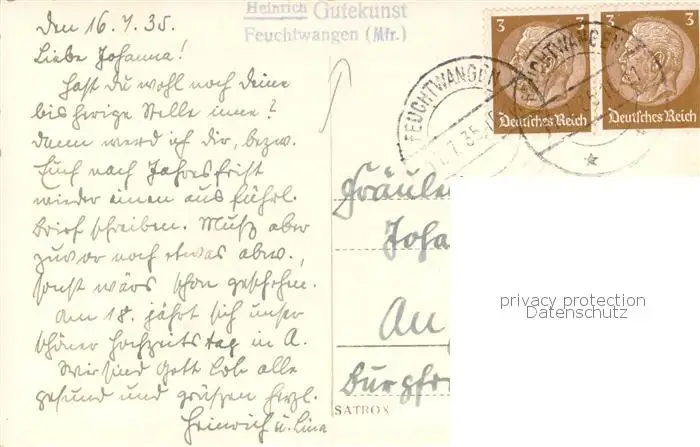 Heinrich Gutekunst
Feuchtwangen (Mfr.)
Den 16.7.35.
Liebe Johanna!
Hast Du wohl noch deine
bisherige Stelle inne?
Dann werd ich dir, bezw.
Euch nach Jahresfrist
wieder einen ausführl.
Brief schreiben. Muß aber
zuvor noch etwas abw.,
sonst wärs schon geschehn.
Am 18. jährt sich unser
schöner Hochzeitstag in A.
Wir sind Gott Lob alle
gesund und grüßen herzl.
Heinrich u. Lina
3 3
Deutsches Reich Deutsches Reich
FEUCHTWANGEN
FEUCHTWANGEN
Fräulei
Joha
An
SATROX
privacy protection
Datenschutz